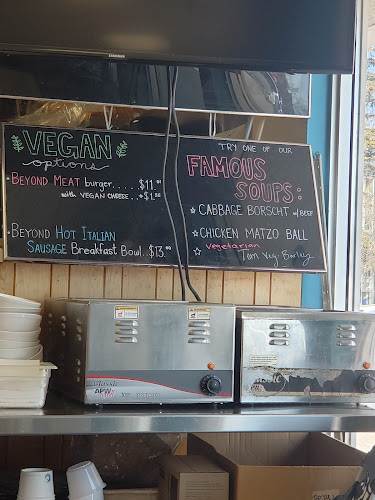 VEGAN
options
BEYOND MEAT burger.....$11.
with VEGAN CHEESE..+$1.
BEYOND HOT ITALIAN
SAUSAGE Breakfast Bowl..$13.
TRY ONE OF OUR
FAMOUS
SOUPS:
CABBAGE BORSCHT w/BEEF
CHICKEN MATZO BALL
vegetarian
Tom Veg. Barley
Classic
APW